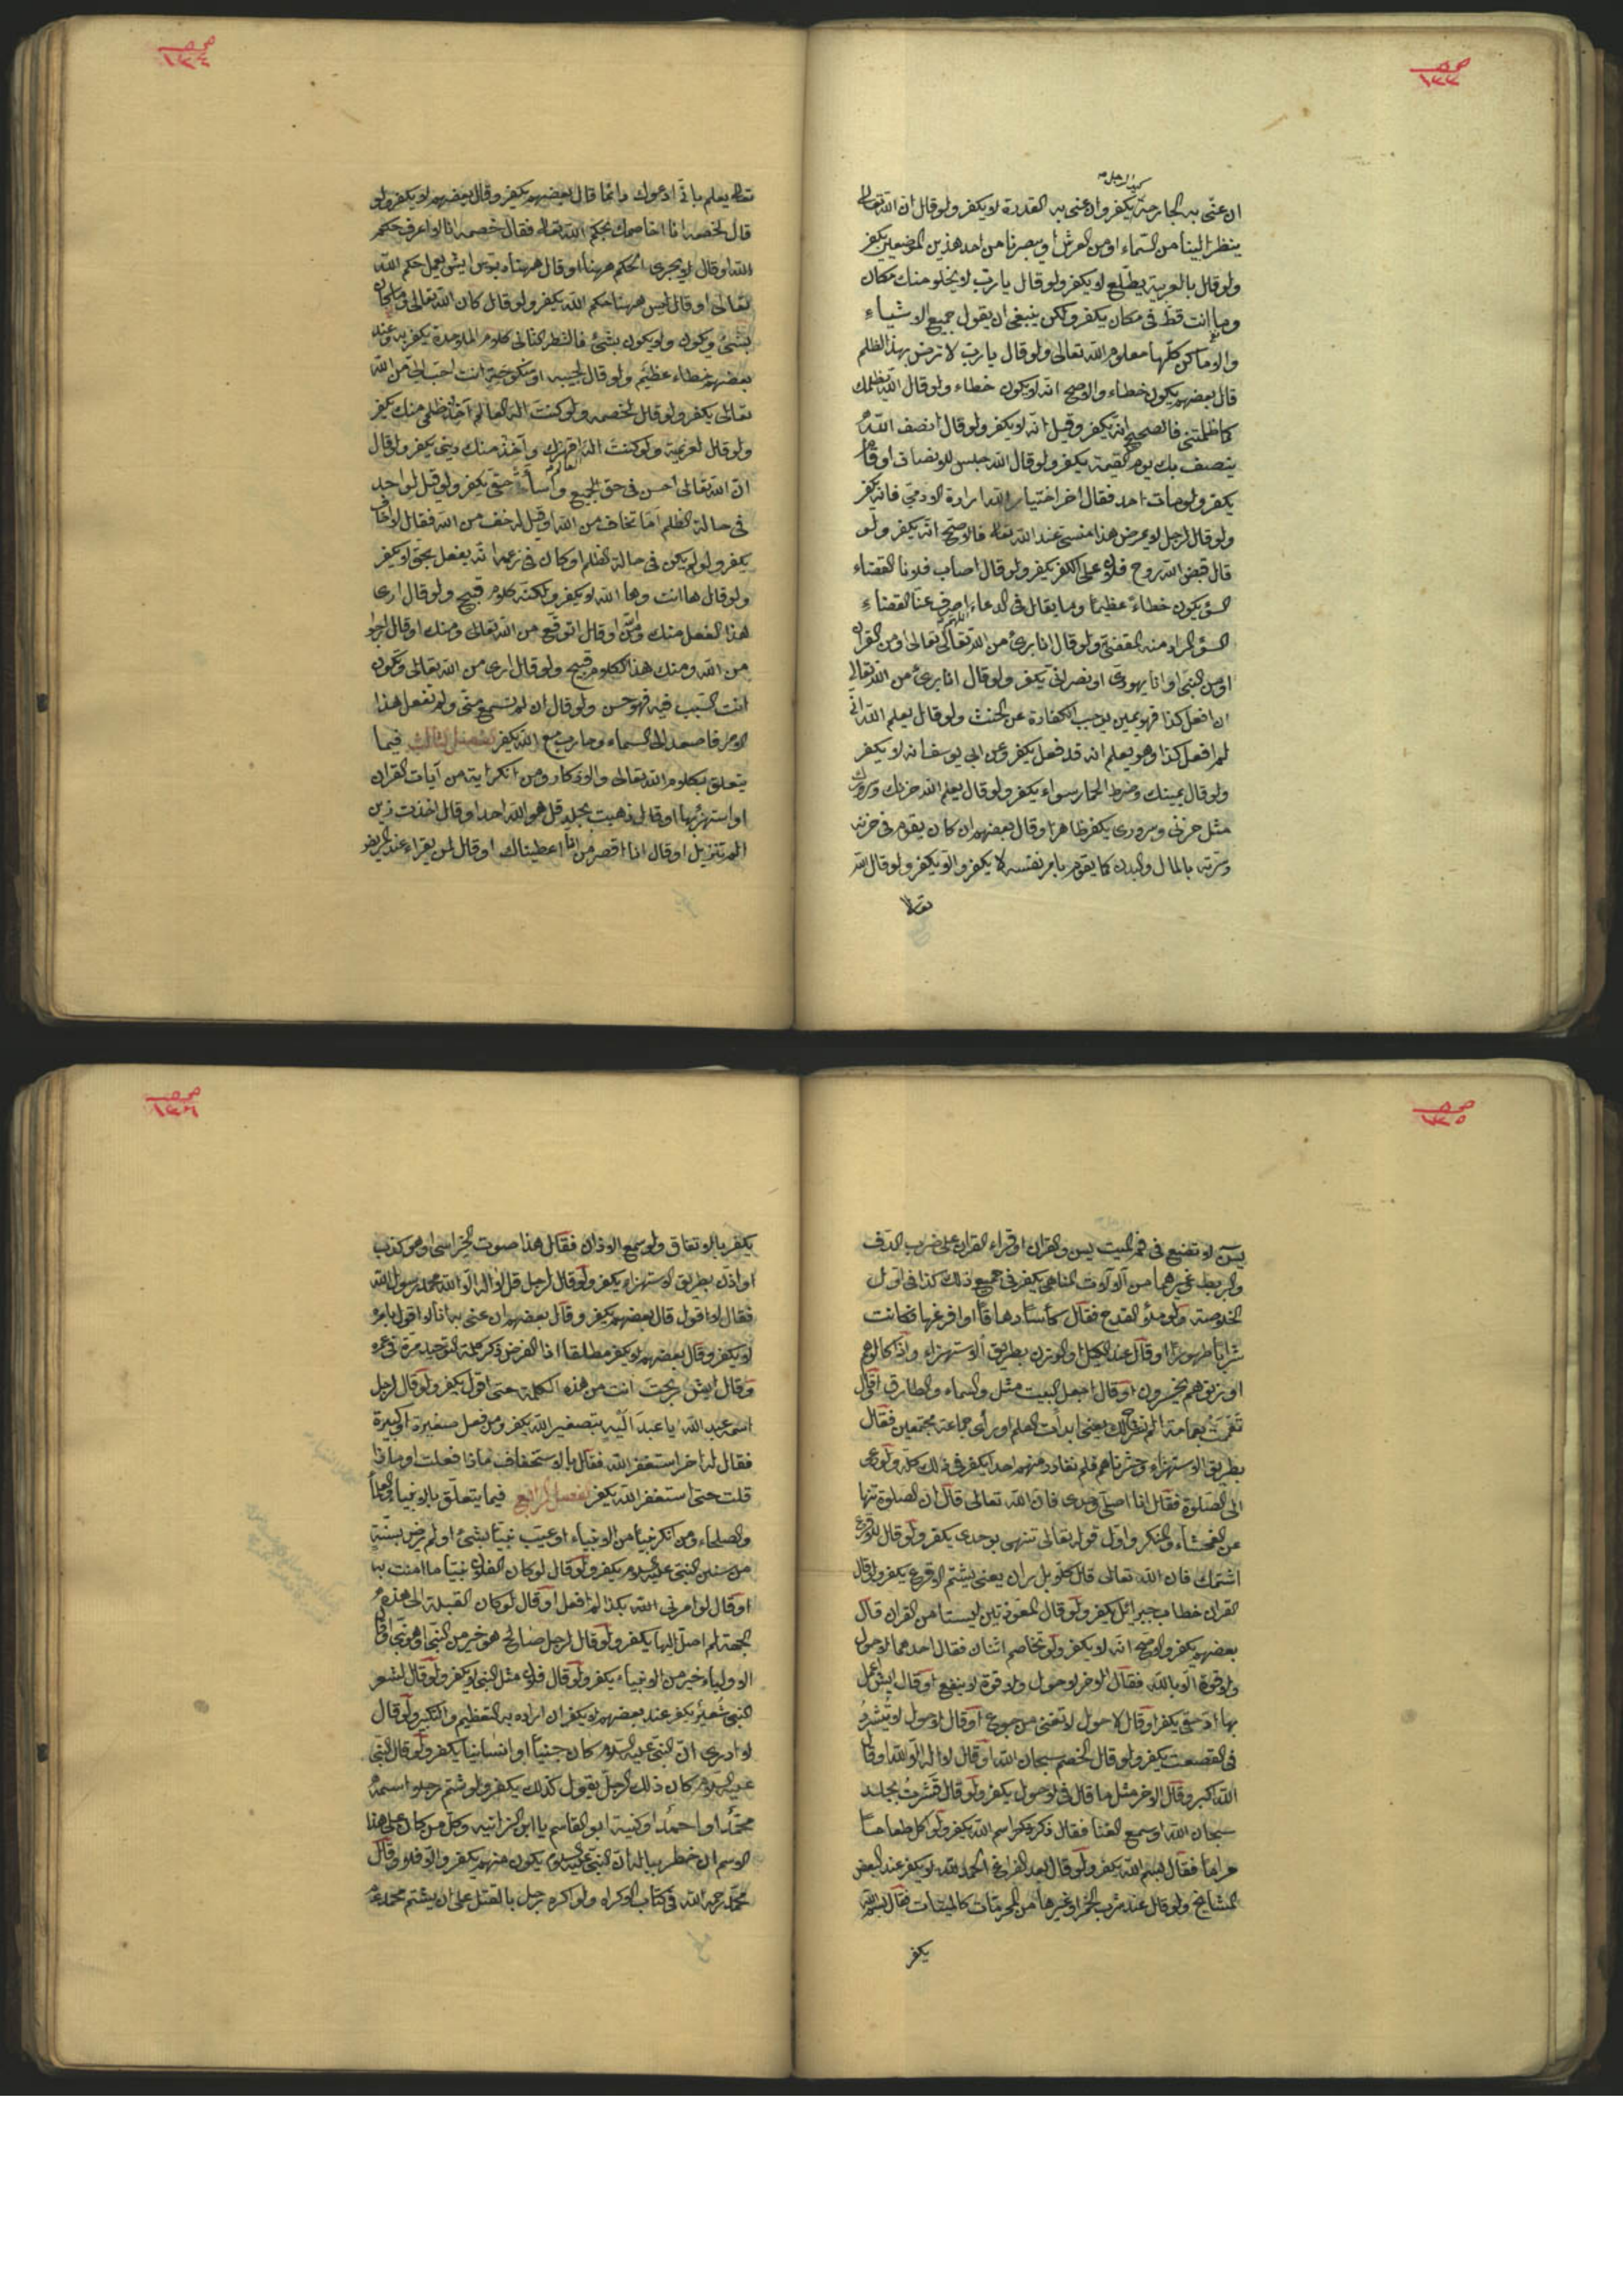 صح ١٣٣
ان عنى به الجارحة يكفر وان عنى به القدرة لا يكفر ولو قال ان الله تعالى
ينظر الينا من السماء او من العرش او يبصرنا من احد هذين الموضعين يكفر
ولو قال بالعربية يطلع لا يكفر ولو قال يا رب لا يخلو منك مكان
وما انت قط فى مكان يكفر ولكن ينبغى ان يقول جميع الاشياء
والاماكن كلها معلوم الله تعالى ولو قال يا رب لا ترض بهذا الظلم
قال بعضهم يكون خطاء والاصح انه لا يكون خطاء ولو قال الله يظلمك
كما ظلمتنى فالصحيح انه يكفر وقيل انه لا يكفر ولو قال انصف الله
ينتصف بك يوم القيمة يكفر ولو قال الله جلس للانصاف او قام
يكفر ولو مات احد فقال اخر اختيار الله ارادة الادمى فانه يكفر
ولو قال لرجل لا يمرض هذا منسى عند الله تعالى فالاصح انه يكفر ولو
قال قبض الله روح فلان على الكفر يكفر ولو قال اصاب فلانا القضاء
السوء يكون خطاء عظيما وما يقال فى الدعاء اللهم اصرف عنا القضاء
السوء المراد منه المقضى ولو قال انا برئ من الله تعالى او من القران
او من النبى او انا يهودى او نصرانى يكفر ولو قال انا برئ من الله تعالى
ان افعل كذا فهو يمين يوجب الكفارة عن الحنث ولو قال يعلم الله انى
لم افعل كذا وهو يعلم انه قد فعل يكفر وعن ابى يوسف انه لا يكفر
ولو قال يمينك وضرط الحمار سواء يكفر ولو قال يعلم الله حزنك وسرورك
مثل حزنى وسرورى يكفر ظاهرا وقال بعضهم ان كان يقوم فى حزنه
وسرته بالمال والبدن كما يقوم بامر نفسه لا يكفر والا يكفر ولو قال الله
تعالى
صح ١٣٤
تعالى يعلم بانى ادعوك دائما قال بعضهم يكفر وقال بعضهم لا يكفر ولو
قال لخصمه انا اخاصمك بحكم الله تعالى فقال خصمه انا لا اعرف حكم
الله او قال لا يجرى الحكم ههنا او قال ههنا دبوس ايش يعمل حكم الله
تعالى او قال ليس ههنا حكم الله يكفر ولو قال كان الله تعالى وما كان
بشئ ويكون ولا يكون بشئ فالشطر الثانى كلام الملاحدة يكفر به وعند
بعضهم خطاء عظيم ولو قال لحبيبه او منكوحته انت احب الى من الله
تعالى يكفر ولو قال لخصمه ولو كنت اله العالم آخذ ظلمى منك يكفر
ولو قال لغريمه ولو كنت الها قهرك وآخذ منك دينى يكفر ولو قال
ان الله تعالى احسن فى حق الجميع واساء حقى يكفر ولو قيل لواحد
فى حالة الظلم اما تخاف من الله او قيل له خف من الله فقال لا اخاف
يكفر ولو لم يكن فى حالة الظلم او كان فى زعمه انه يفعل بحق لا يكفر
ولو قال ها انت وها الله لا يكفر ولكنه كلام قبيح ولو قال ارى
هذا الفعل منك ومن او قال اتوقع من الله تعالى ومنك او قال ارجوا
من الله ومنك هذا الكلام قبيح ولو قال ارى من الله تعالى وتكون
انت السبب فيه فهو حسن ولو قال ان لم تسمع منى ولم تفعل هذا
الامر فاصعد الى السماء وحارب مع الله يكفر الفصل الثالث فيما
يتعلق بكلام الله تعالى والاذكار ومن انكر اية من آيات القران
او استهزئها او قال ذهبت بجلد قل هو الله احد او قال اخذت زين
الم تنزيل او قال انا اقصر من انا اعطيناك او قال لمن يقراء عند المريض
صح ١٣٥
يس لا تضع فى فم الميت يس والقران او قراء القران على ضرب الدف
والبربط غيرهما من آلات المناهى يكفر فى جميع ذلك كذا فى اول
الخلاصة ولو ملؤ القدح فقال كأسا دهاقا او افرغها فكانت
شرابا طهورا او قال عند الكيل او الوزن بطريق الاستهزاء واذا كالوهم
او وزنوهم يخسرون او قال اجعل البيت مثل والسماء والطارق او قال
تعممت بعمامة الم نشرح لك يعنى ابدأت العلم او رأى جماعة مجتمعين فقال
بطريق الاستهزاء وحشرناهم فلم نغادر منهم احدا يكفر فى ذلك كله ولو دعى
الى الصلوة فقال انا اصلى وحدى فان الله تعالى قال ان الصلوة تنها
عن الفحشاء والمنكر واول قوله تعالى تنهى بوحدى يكفر ولو قال للاقرع
اشتمك فان الله تعالى قال كلا بل ران يعنى يشتم الاقرع يكفر ولو قال
القران خطاب جبرائل يكفر ولو قال المعوذتين ليستا من القران قال
بعضهم يكفر والاصح انه لا يكفر ولو تخاصم اثنان فقال احدهما لا حول
ولا قوة الا بالله فقال الاخر لا حول ولا قوة لا ينفع او قال ايش اعمل
بها احقى يكفر او قال لا حول لا تغنى من جوع او قال لا حول لا يثرد
فى القصعت يكفر ولو قال الخصم سبحان الله او قال لا اله الا الله او قال
الله اكبر وقال الاخر مثل ما قال فى لا حول يكفر ولو قال قشرت بجلد
سبحان الله او سمع الغنا فقال ذكر ذكر اسم الله يكفر ولو اكل طعاما
حراما فقال بسم الله يكفر ولو قال بعد الفراغ الحمد لله لا يكفر عند البعض
المشايخ ولو قال عند شرب الخمر او غيرها من المحرمات كالميتات فقال بسم الله
يكفر
صح ١٣٦
يكفر بالاتفاق ولو سمع الاذان فقال هذا صوت الجراس او هو كذب
او اذن بطريق الاستهزاء يكفر ولو قال لرجل قل لا اله الا الله محمد رسول الله
فقال لا اقول قال بعضهم يكفر وقال بعضهم ان عنى به انا لا اقول بامره
لا يكفر وقال بعضهم لا يكفر مطلقا اذا الفرض ذكر كلمة التوحيد مرة فى عمره
وقال ايش ربحت انت من هذه الكلمة حتى اقول يكفر ولو قال لرجل
اسمه عبد الله يا عبد اليه بتصغير الله يكفر ومن فعل صغيرة او كبيرة
فقال له اخر استغفر الله فقال بالاستخفاف ماذا فعلت او ماذا
قلت حتى استغفر الله يكفر الفصل الرابع فيما يتعلق بالانبياء والعلماء
والصلحاء ومن انكر نبيا من الانبياء او عيب نبيا بشئ او لم يرض بسنة
من سنن النبى عليه السلام يكفر ولو قال لو كان الفلان نبيا ما امنت به
او قال لو امرنى الله بكذا لم افعل او قال لو كان القبلة الى هذه
الجهة لم اصل اليها يكفر ولو قال لرجل صالح هو خير من النبى او هو نبى او قال
الاولياء خير من الانبياء يكفر ولو قال فلان مثل النبى لا يكفر ولو قال لشعر
النبى شعير يكفر عند بعضهم لا يكفر ان اراد به التعظيم والتكبير ولو قال
لا ادرى ان النبى عليه السلام كان جنيا او انسانيا يكفر ولو قال النبى
عليه السلام كان ذلك الرجل يقول كذلك يكفر ولو شتم رجلا اسمه
محمدا او احمد او كنية ابو القاسم يا ابن الزانية وكل من كان على هذا
الاسم ان خطر بباله ان النبى عليه السلام يكون منهم يكفر والا فلا وقال
محمد رحمه الله فى كتاب الاكراه ولو اكره رجل بالقتل على ان يشتم محمد